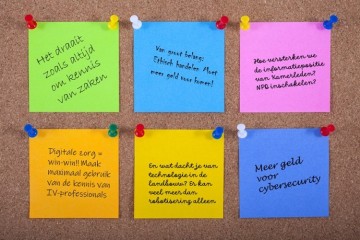 Het draait
zoals altijd
om kennis
van zaken
Van groot belang:
Ethisch handelen. Moet
meer geld voor komen!
Hoe versterken we
de informatiepositie
van Kamerleden?
NPG inschakelen?
Digitale zorg =
win-win!! Maak
maximaal gebruik
van de kennis van
IV-professionals
En wat dacht je van
technologie in de
landbouw? Er kan
veel meer dan
robotisering alleen
Meer geld
voor
cybersecurity